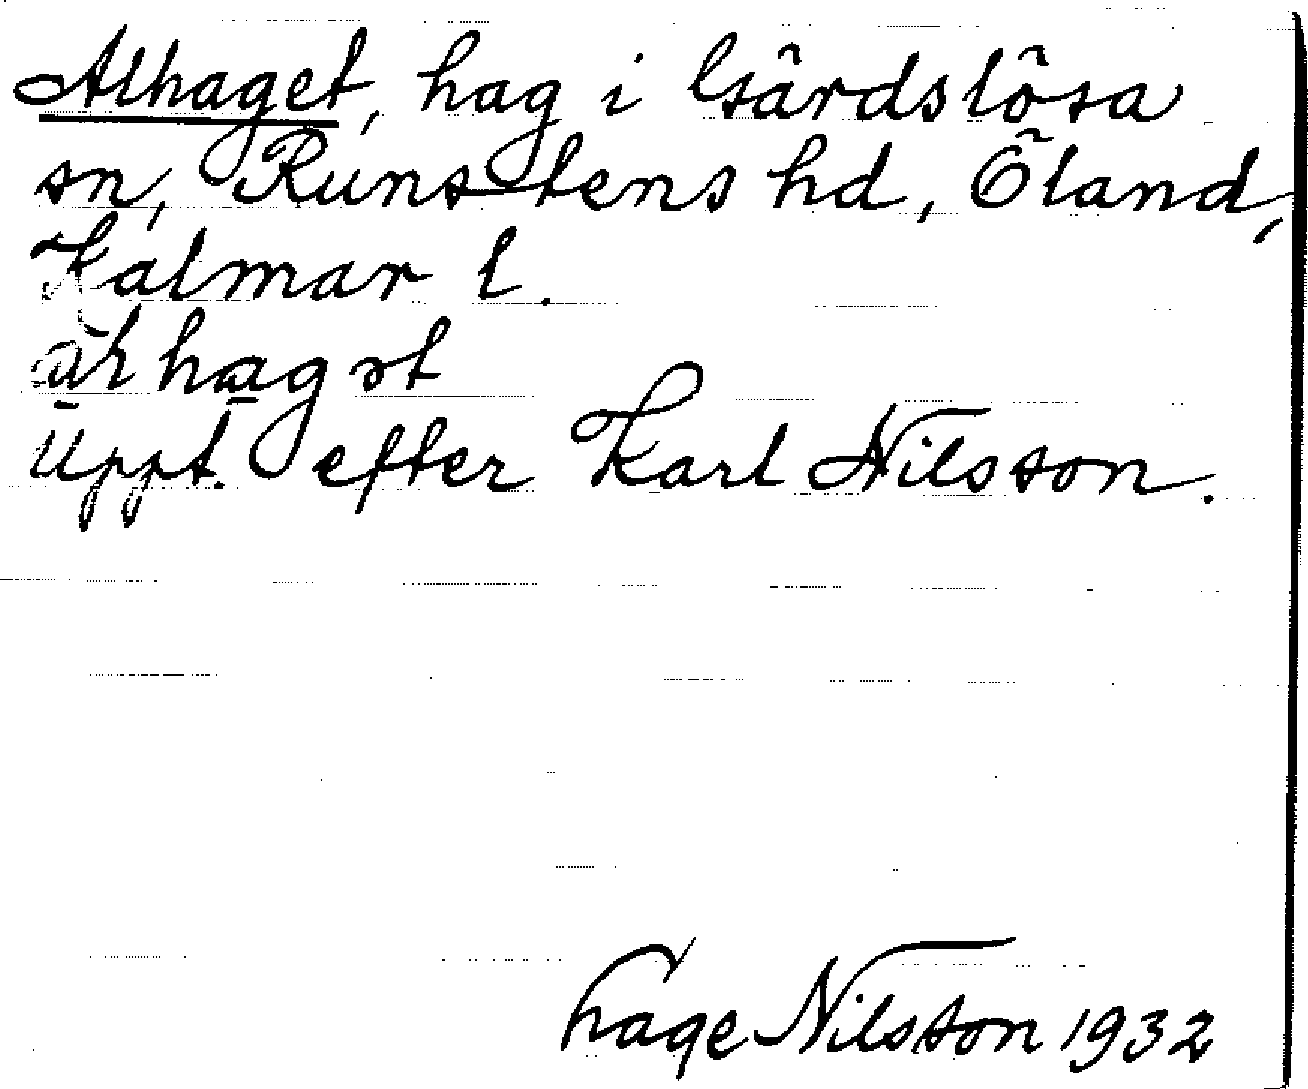 Alhaget, hag i Gärdslösa
sn, Runstens hd, Öland,
Kalmar l.
Uppt. efter Karl Nilsson.
Nilsson 1932